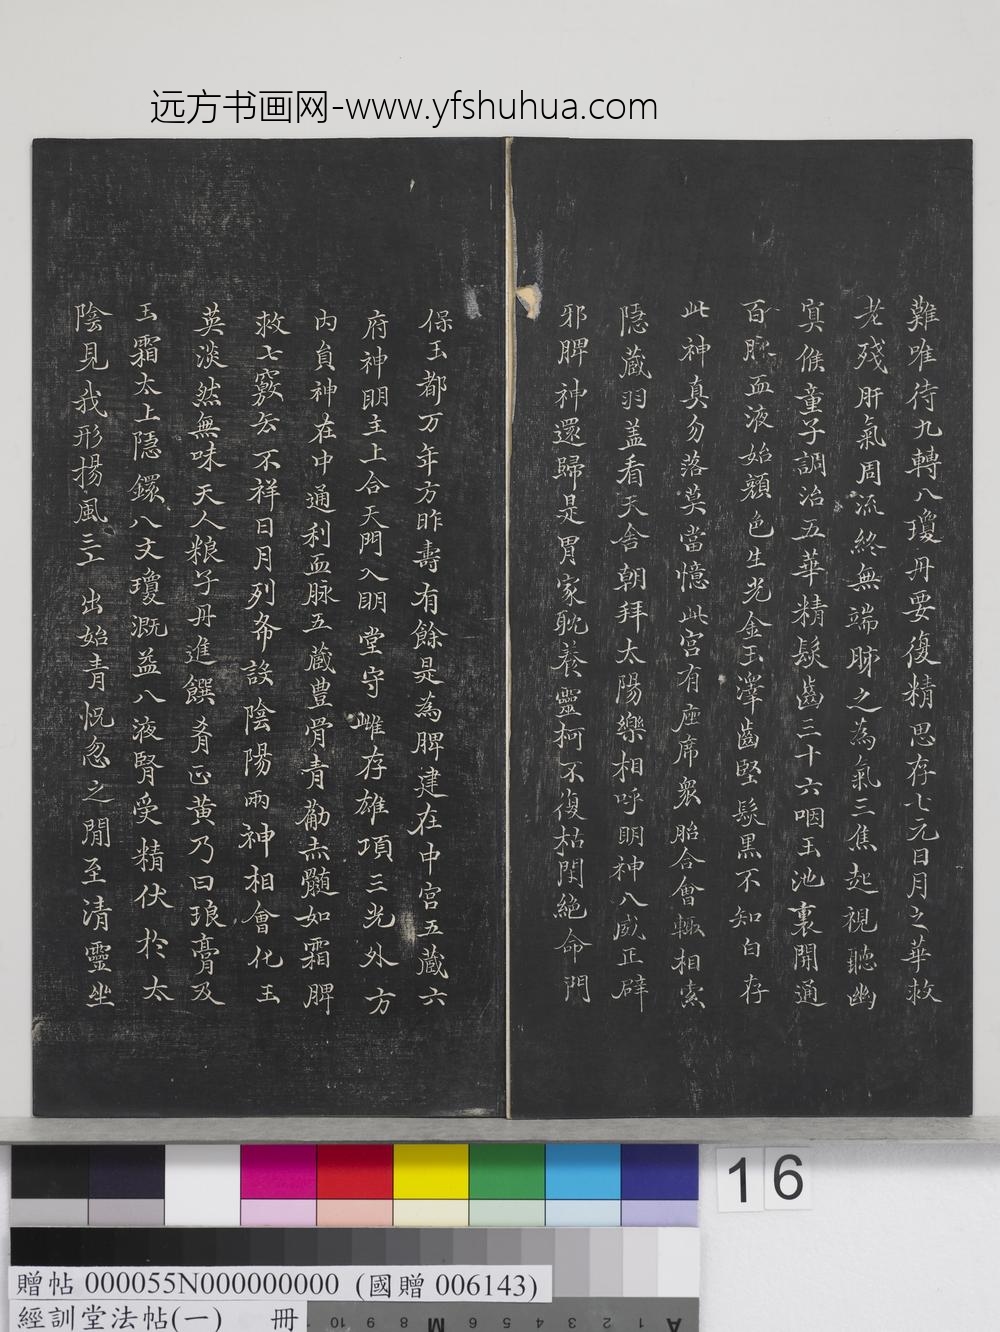 远方书画网-www.yfshuhua.com
難唯待九轉八瓊丹要復精思存七元日月之華救
老殘肝氣周流終無端肺之為氣三焦起視聽幽
冥候童子調治五華精髮齒三十六咽玉池裏開通
百脉血液始顏色生光金玉澤齒堅髮黑不知白存
此神真勿落莫當憶此宮有座席衆胎合會轉相索
隱藏羽盖看天舍朝拜太陽樂相呼明神八威正辟
邪脾神還歸是胃家耽養靈柯不復枯閉絕命門
保玉都万年方昨壽有餘是為脾建在中宮五藏六
府神明主上合天門入明堂守雌存雄項三光外方
內貟神在中通利血脉五藏豊骨青勸赤髓如霜脾
救七竅去不祥日月列布設陰陽兩神相會化玉
英淡然無味天人粮子丹進饌肴正黃乃曰琅膏及
玉霜太上隱鐶八文瓊溉益八液腎受精伏於太
陰見我形揚風三 出始青怳忽之間至清靈坐
16
贈帖 000055N000000000 (國贈 006143)
經訓堂法帖(一) 冊
A 1 2 3 4 5 6 M 8 9 10